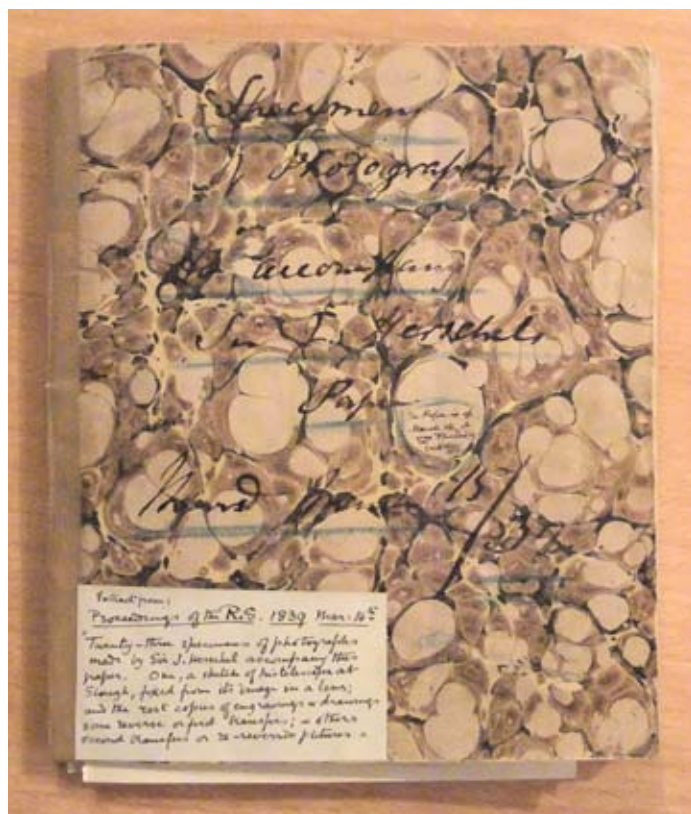 Specimens
Photography
to accompany
Sir J. Herschel's
Paper
March
Extract from:
Proceedings of the R.S. 1839 Mar: 14th
"Twenty-three specimens of photographs
made by Sir J. Herschel accompany this
paper. One, a sketch of his telescope at
Slough, fixed from its image in a lens;
and the rest copies of engravings & drawings
some reverse or first transfers; & others
second transfers or re-reversed pictures."